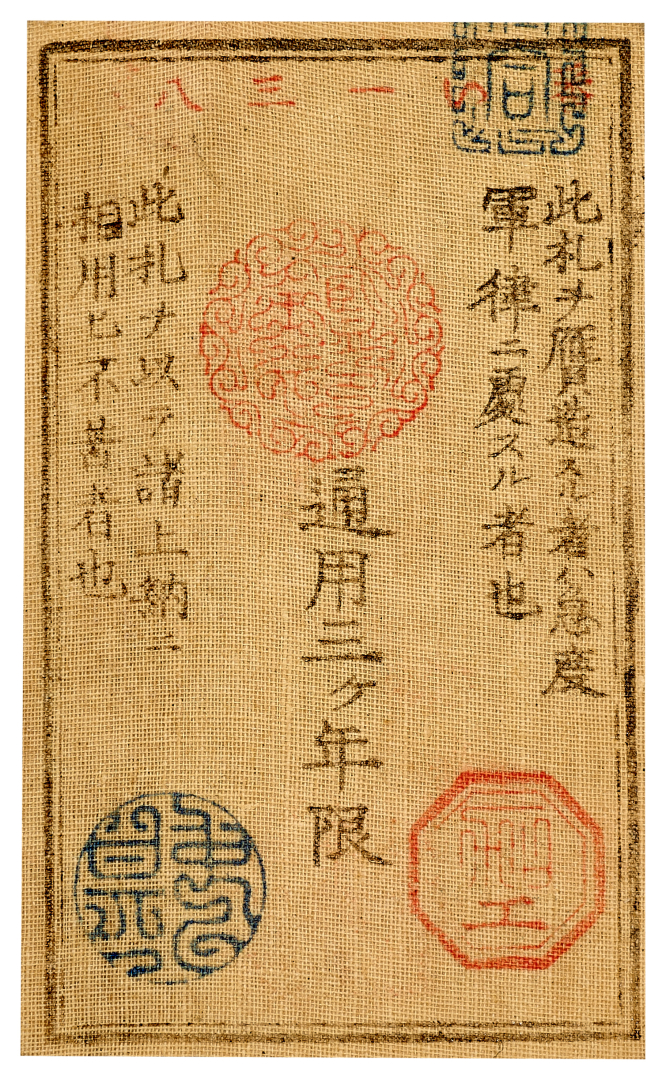 一三八
此札ヲ贋造スル者ハ急度
軍律ニ處スル者也
通用三ケ年限
此札ヲ以テ諸上納ニ
相用ヒ不苦者也
工